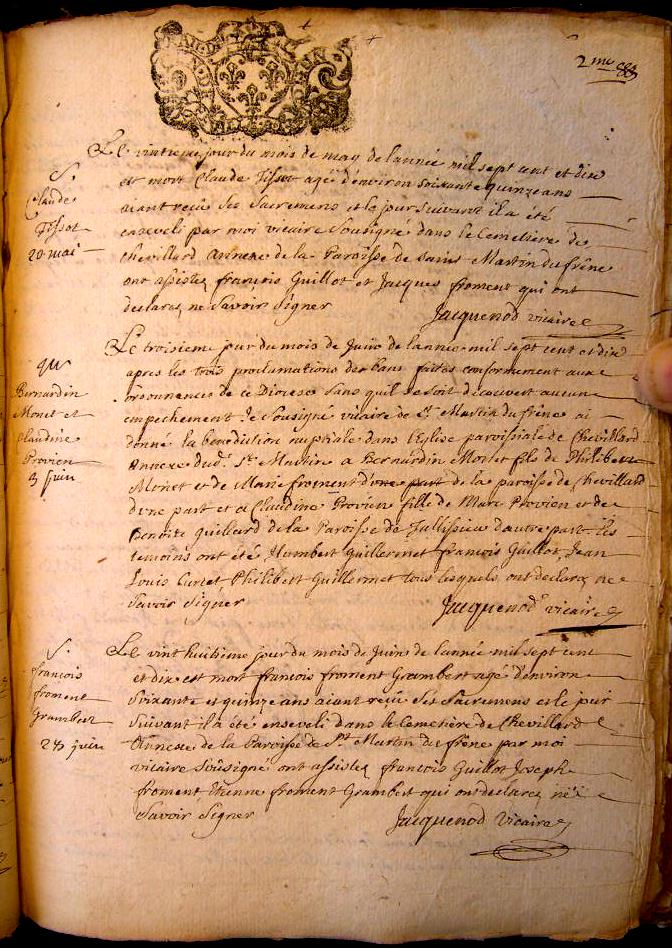 2me
Le vintieme jour du mois de may de lannée mil sept cent et dix
est mort Claude Tissot agé d'environ soixante et quinze ans
aiant reçu ses Sacremens et le jour suivant il a été
enseveli par moi vicaire Sousigné dans le Cemetiere de
Chevillard annexe de la Paroisse de Saint Martin du frêne
ont assistez françois Guillot et Jacques froment qui ont
declarez ne Savoir Signer
Jacquenod vicaire
S.
Claude
Tissot
20 mai
Le troisieme jour du mois de Juin de lannée mil sept cent et dix
apres les trois proclamations des bans faites conformement aux
ordonnances de ce Diocese sans quil se soit decouvert aucun
empechement Je Sousigné vicaire de St Martin du frêne ai
donné la benediction nuptiale dans l'Eglise paroissiale de Chevillard
Annexe dud. St Martin a Bernardin Monet fils de Philibert
Monet et de Marie froment d'une part de la paroisse de Chevillard
d'une part et a Claudine Provien fille de Marc Provien et de
Benoite Guillard de la Paroisse de d'autre part les
temoins ont été Humbert Guillermet françois Guillot Jean
Louis Curtet Philibert Guillermet tous lesquels ont declarez ne
Savoir Signer
Jacquenod vicaire
Bernardin
Monet et
Claudine
Provien
3 juin
Le vint huitieme jour du mois de Juin de lannée mil sept cent
et dix est mort françois froment Grambert agé d'environ
Soixante et quinze ans aiant reçu Ses Sacremens et le jour
Suivant il a été enseveli dans le Cemetière de Chevillard
Annexe de la Paroisse de St Martin du frêne par moi
vicaire Sousigné ont assistez françois Guillot Joseph
froment Etienne froment Grambert qui ont declarez
Savoir Signer
Jacquenod Vicaire
S.
françois
froment
Grambert
28 juin